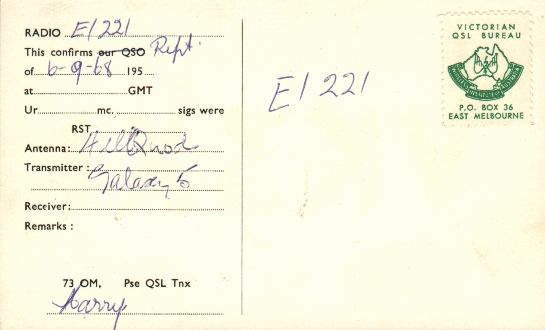 RADIO EI 221
This confirms our QSO Rept.
of 6-9-68 195
at GMT
Ur mc. sigs were
RST
Antenna:
Transmitter: Galaxy 5
Receiver:
Remarks :
73 OM, Pse QSL Tnx
Harry
EI 221
VICTORIAN
QSL BUREAU
P.O. BOX 36
EAST MELBOURNE